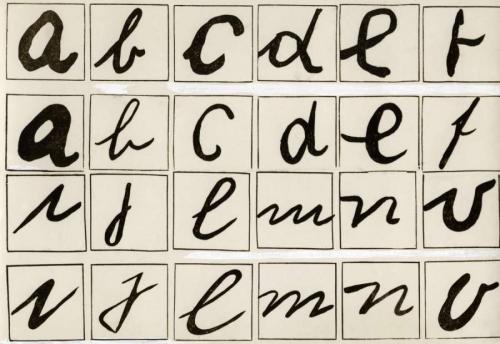 a b c d e f
a b c d e f
i j l m n v
i j l m n v